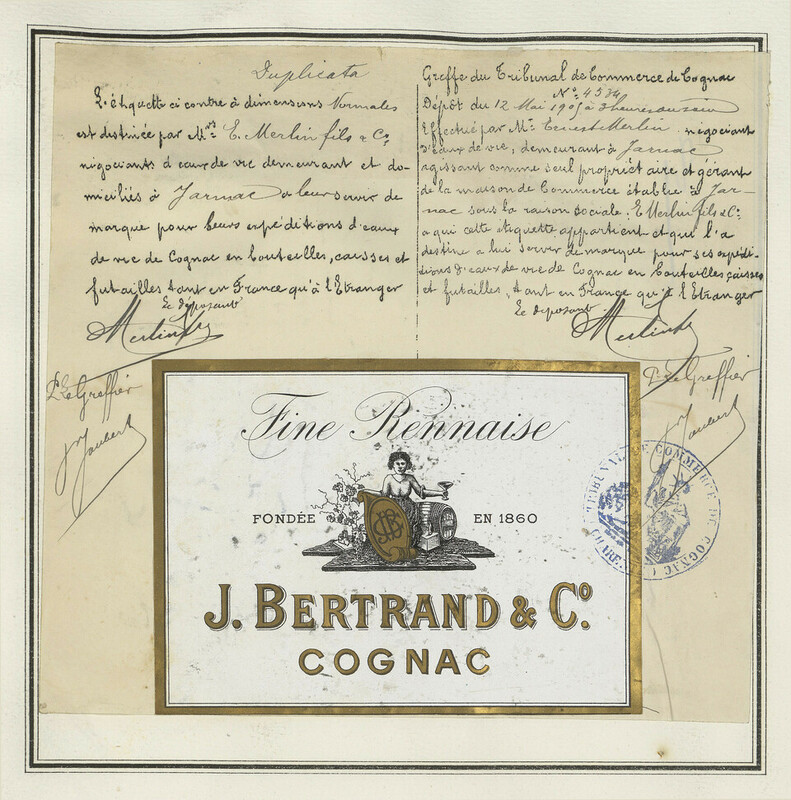 Duplicata
L'étiquette ci contre à dimensions Normales
est destinée par Mrs E. Merlin fils & Co.
négociants d'eaux de vie demeurant et do-
miciliés à Jarnac à leur servir de
marque pour leurs expéditions d'eaux
de vie de Cognac en bouteilles, caisses et
futailles tant en France qu'à l'Etranger
Le déposant
Merlin fils
Pr Le Greffier
Joubert
Greffe du Tribunal de Commerce de Cognac
No
Dépôt du 12 Mai 1905 à 3 heures du soir
Effectué par Mr Ernest Merlin négociant
d'eaux de vie, demeurant à Jarnac
agissant comme seul propriétaire et gérant
de la maison de Commerce établie à Jar-
nac sous la raison sociale: E Merlin fils & Co.
a qui cette étiquette appartient et qui l'a
destine a lui servir de marque pour ses expédi-
tions d'eaux de vie de Cognac en bouteilles, caisses
et futailles, tant en France qu'à l'Etranger
Le déposant
Merlin fils
Pr Le Greffier
Joubert
Fine Rennaise
FONDÉE EN 1860
JB
J. BERTRAND & Co.
COGNAC
TRIBUNAL DE COMMERCE DE COGNAC